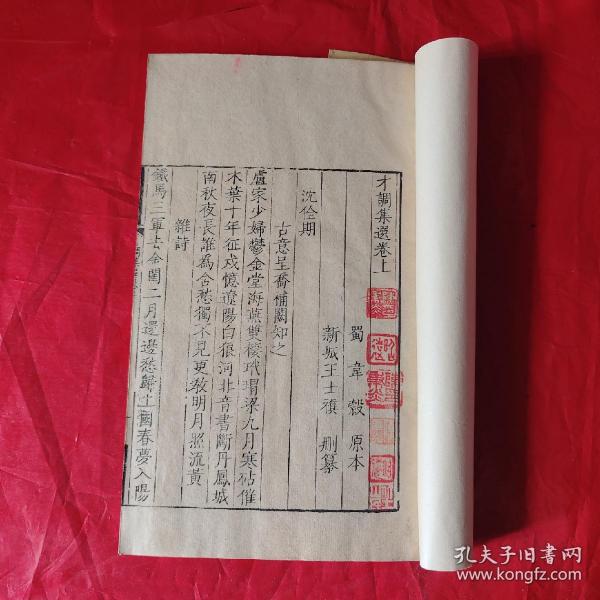 才調集選卷上
蜀韋縠原本
新城王士禛刪纂
沈佺期
古意呈喬補闕知之
盧家少婦鬱金堂海燕雙棲玳瑁梁九月寒砧催
木葉十年征戍憶遼陽白狼河北音書斷丹鳳城
南秋夜長誰為含愁獨不見更教明月照流黃
雜詩
鐵馬三軍去金閨二月還邊愁歸上國春夢入陽
孔夫子旧书网
www.kongfz.com